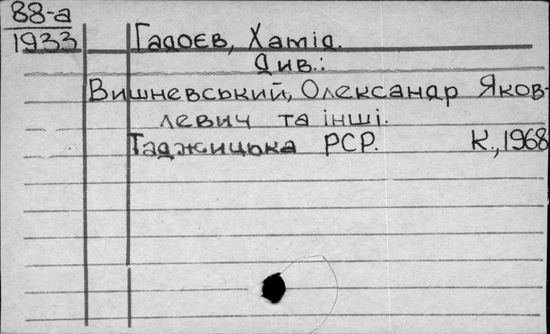 88-а
1933
Гадоєв, Хамід.
Див.:
Вишневський, Олександр Яков-
левич та інші.
Таджицька РСР. К., 1968